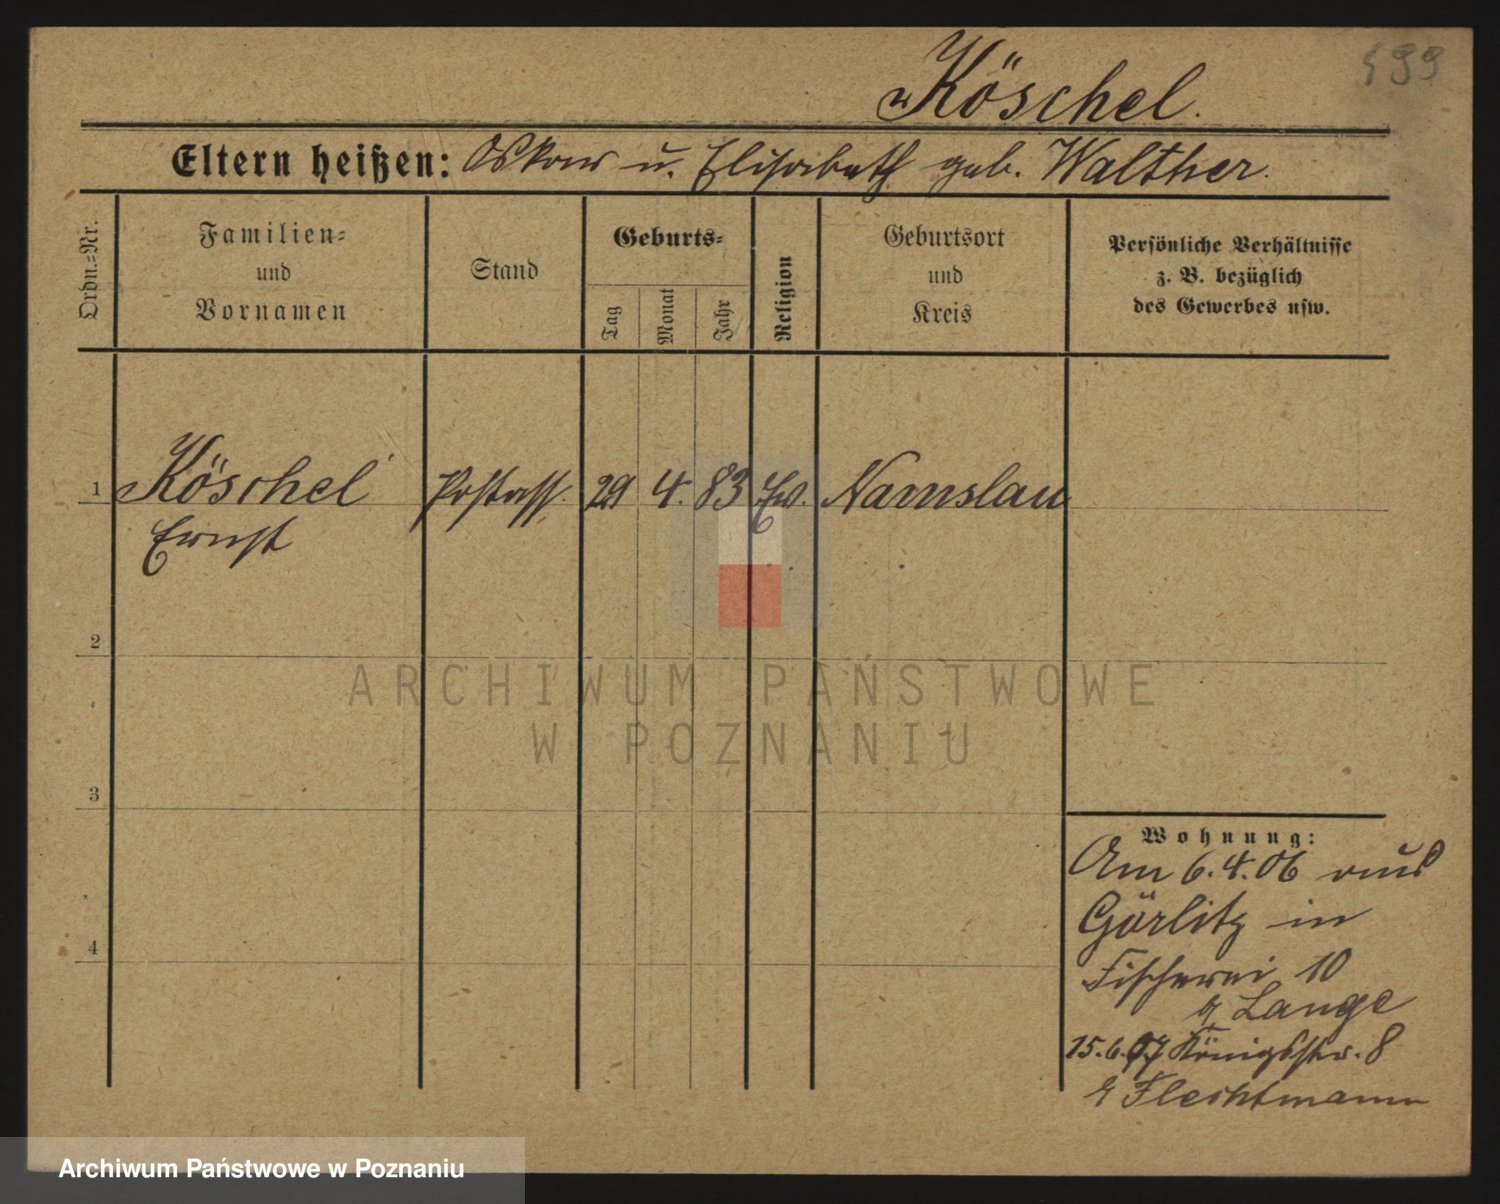 599
Köschel.
Eltern heißen: Oskar u. Elisabeth geb. Walther.
Ordn.-Nr.
Familien-
und
Vornamen
Stand
Geburts-
Tag
Monat
Jahr
Religion
Geburtsort
und
Kreis
Persönliche Verhältnisse
z. B. bezüglich
des Gewerbes usw.
1 Köschel Postass. 29 4. 83 Ev. Namslau
Ernst
2
3
4
Wohnung:
Am 6.4.06 aus
Görlitz in
Fischerei 10
Lange
15.6.07 Königsstr. 8
Flechtmann
ARCHIWUM PAŃSTWOWE
W POZNANIU
Archiwum Państwowe w Poznaniu